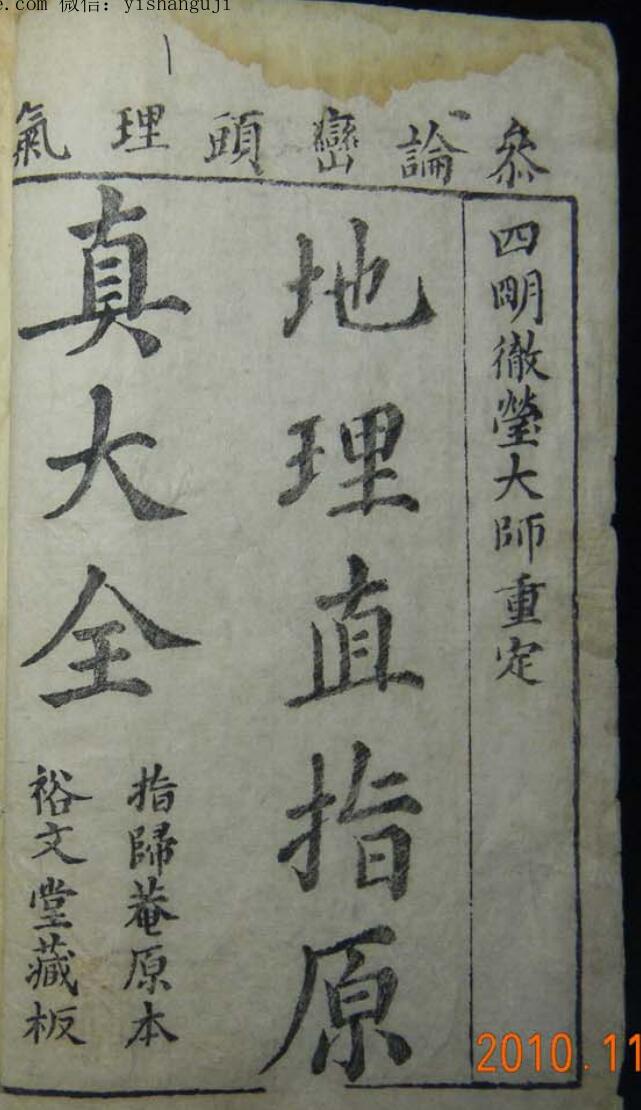 e.com 微信：yishanguji
參論巒頭理氣
四明徹瑩大師重定
地理直指原
真大全
指歸菴原本
裕文堂藏板
2010.11